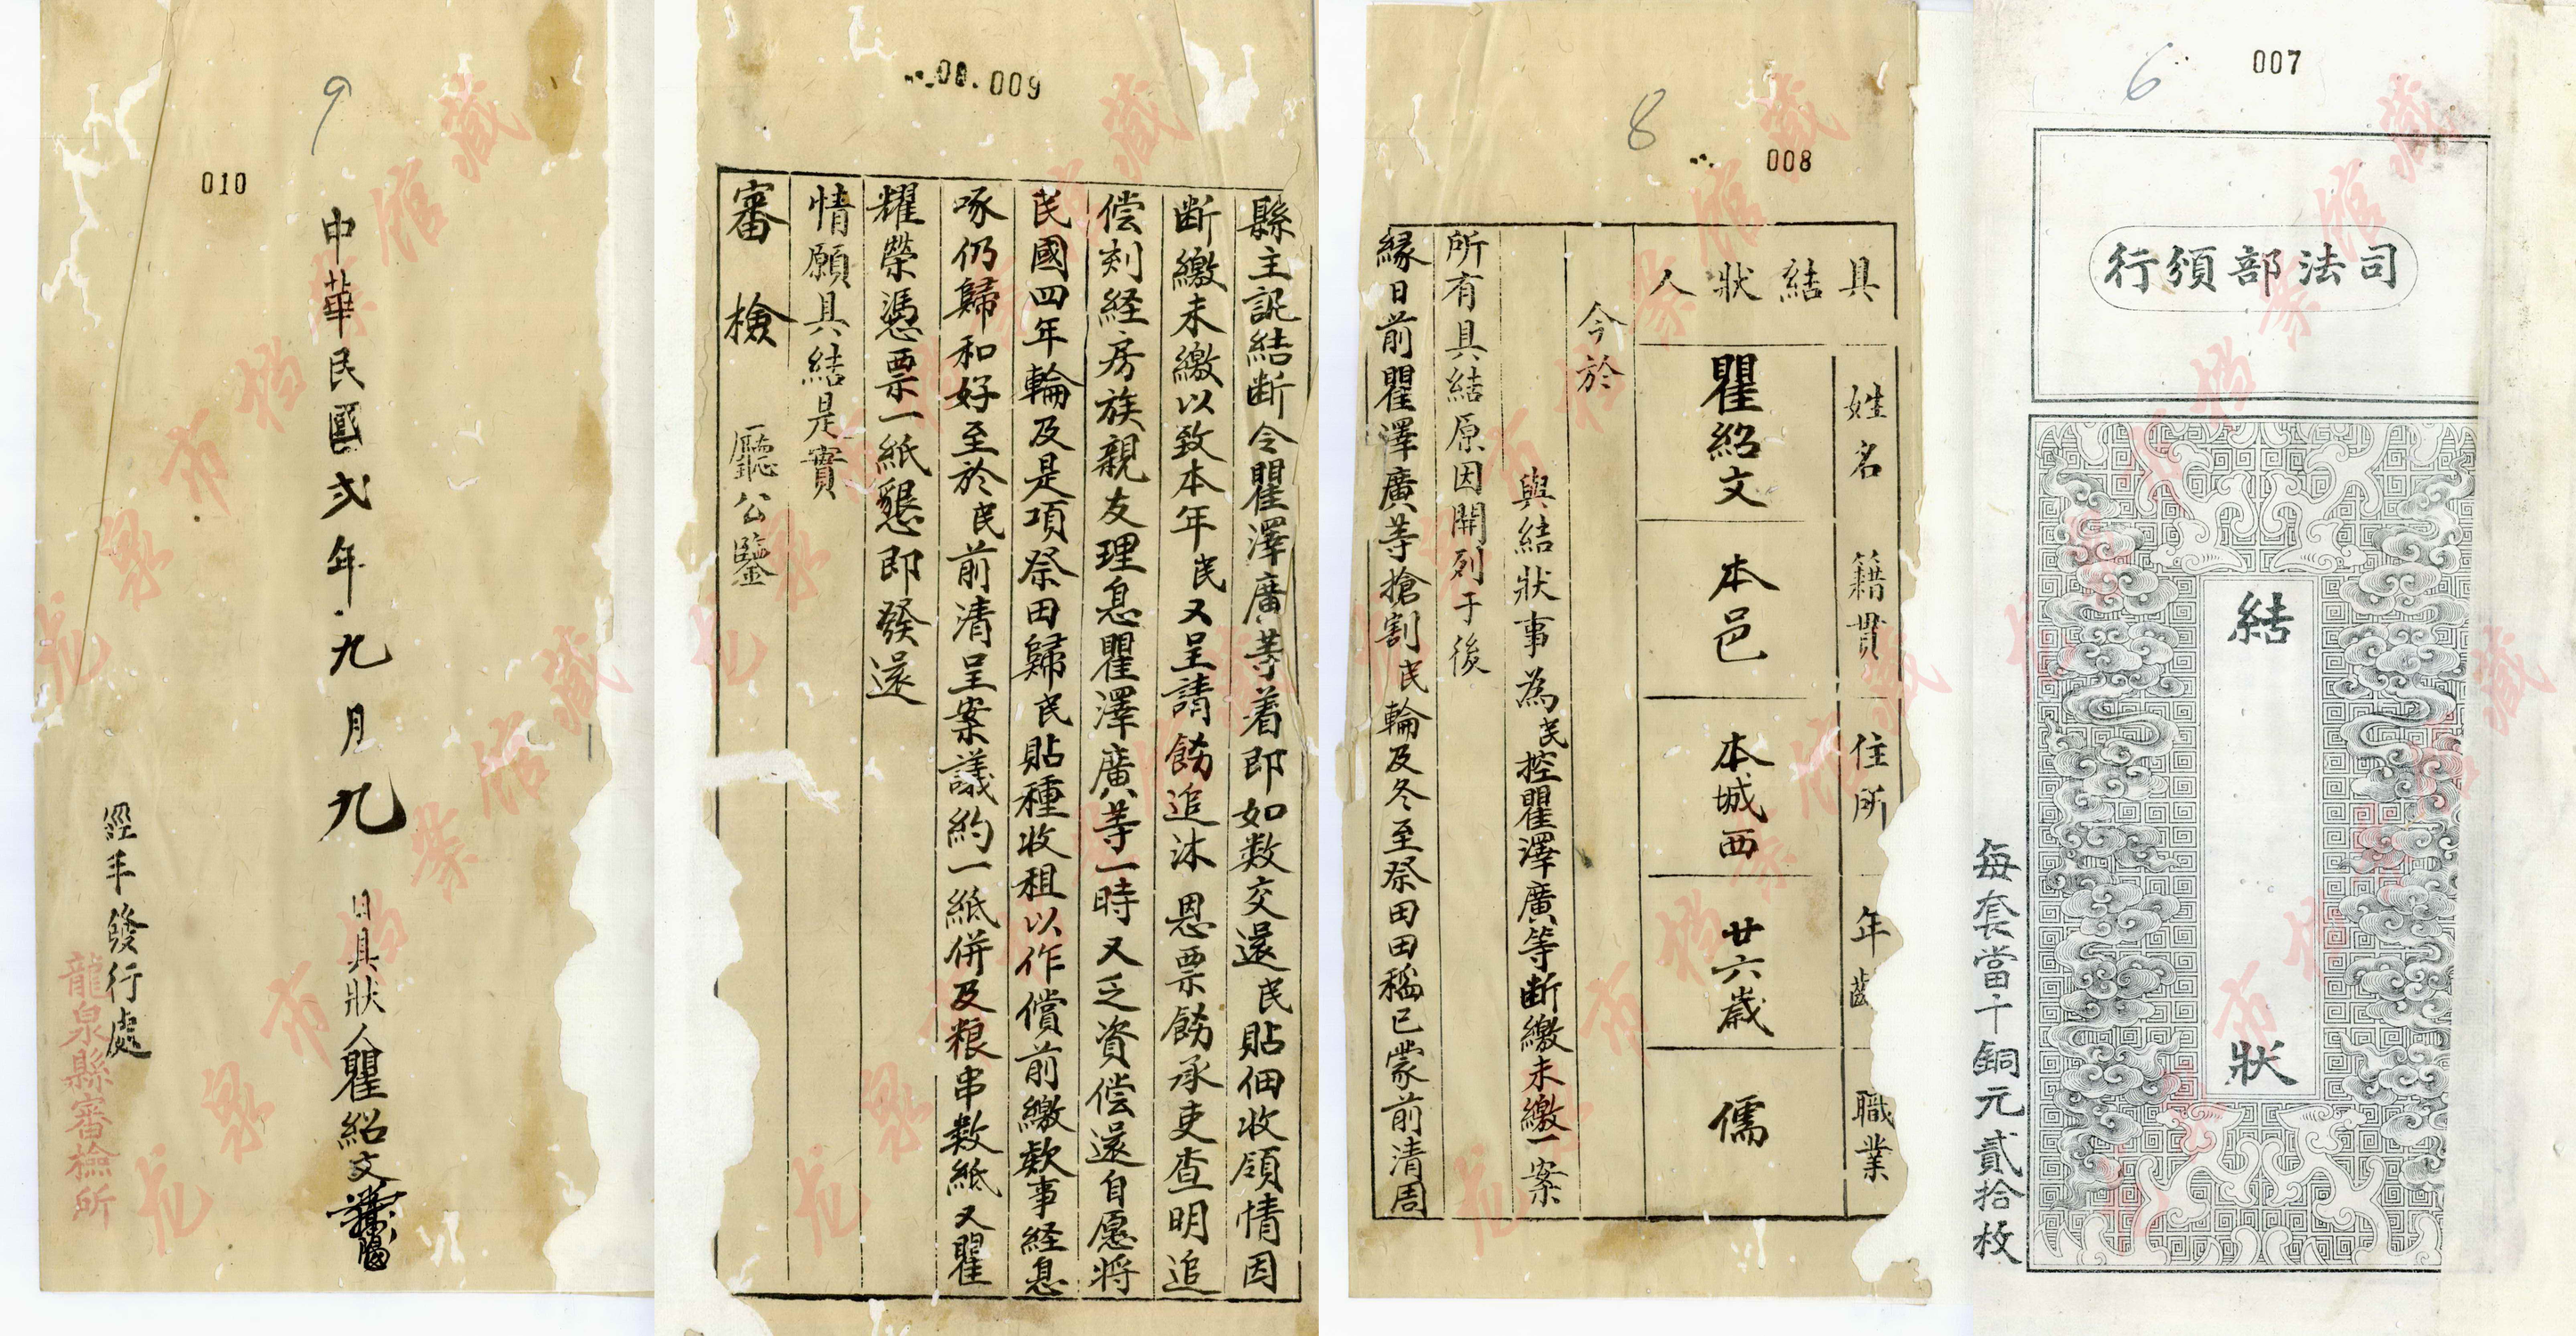 007
6
司法部頒行
結狀
每套當十銅元貳拾枚
008
8
具結狀人
姓名
籍貫
住所
年齡
職業
瞿紹文
本邑
本城西
廿六歲
儒
今於
與結狀事為民控瞿澤廣等斷繳未繳一案
所有具結原因開列于後
緣日前瞿澤廣等搶割民輪及冬至祭田田稻已蒙前清周
009
縣主訊結断令瞿澤廣等着即如数交還民貼佃收領情因
断繳未繳以致本年民又呈請飭追沐恩票飭承吏查明追
偿剡経房族親友理息瞿澤廣等一時又乏資偿還自愿將
民國四年輪及是項祭田歸民貼種收租以作償前繳欵事経息
啄仍歸和好至於民前清呈案議約一紙併及粮串数紙又瞿
耀榮憑票一紙懇即發還
情願具結是實
審檢廳公鑒
010
9
中華民國弍年九月九日具狀人瞿紹文
經手發行處
龍泉縣審檢所
龙泉市档案馆藏